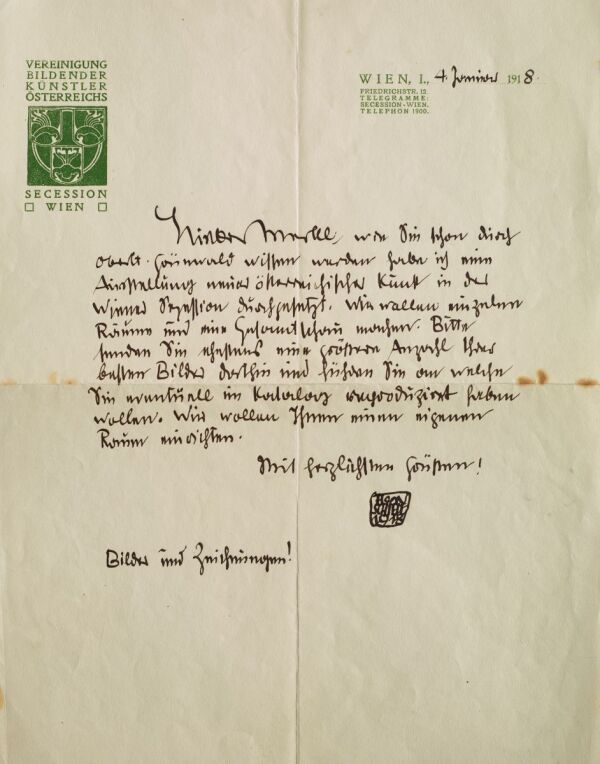 VEREINIGUNG
BILDENDER
KÜNSTLER
ÖSTERREICHS
SECESSION
WIEN
WIEN, I., 4. Januar 1918.
FRIEDRICHSTR. 12.
TELEGRAMME:
SECESSION-WIEN.
TELEPHON 1900.
Lieber Merkel, wie Sie schon durch
oberlt. Grünwald wissen werden habe ich eine
Ausstellung neuer österreichischer Kunst in der
Wiener Sezession durchgesetzt. Wir wollen einzelne
Räume und eine Gesamtschau machen. Bitte
senden Sie ehestens eine grössere Anzahl Ihrer
besten Bilder dorthin und führen Sie an welche
Sie eventuell im Katalog reproduziert haben
wollen. Wir wollen Ihnen einen eigenen
Raum einrichten.
Mit herzlichsten Grüssen!
EGON
Bilder und Zeichnungen!